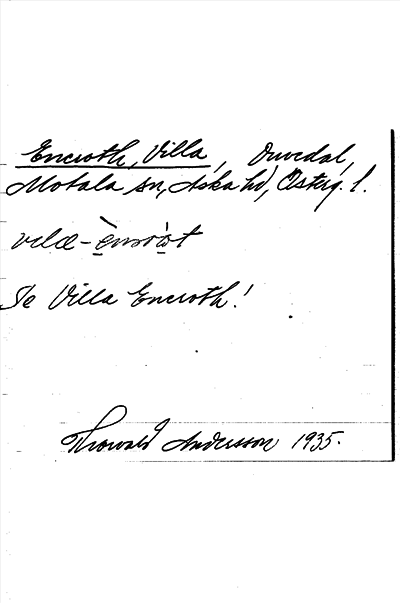 Encroth, Villa, Duvedal,
Motala sn, Aska hd, Österg. l.
Se Villa Encroth!
Thorvald Andersson 1935.